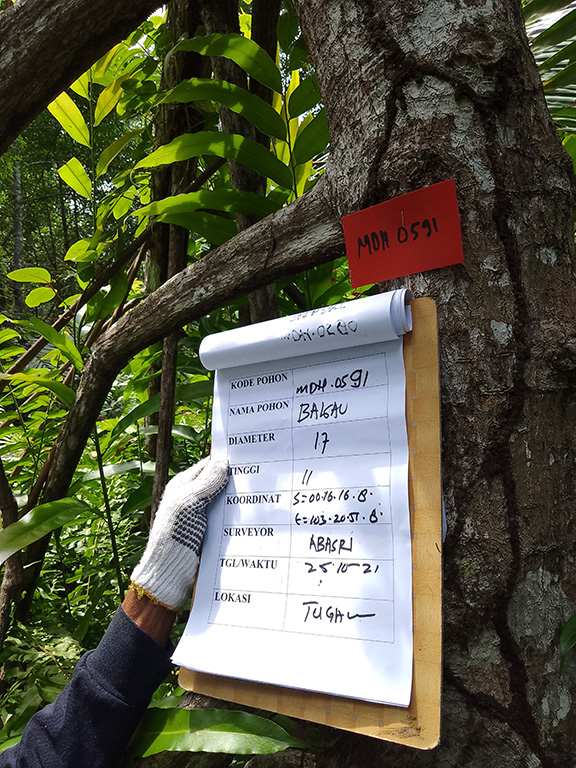 MDH 0591
KODE POHON MDH.0591
NAMA POHON BAKAU
DIAMETER 17
TINGGI 11
KOORDINAT S=00.16.16.8.
E=103.20.51.8.
SURVEYOR ABASRI
TGL/WAKTU 25-10-21
LOKASI TUGAU